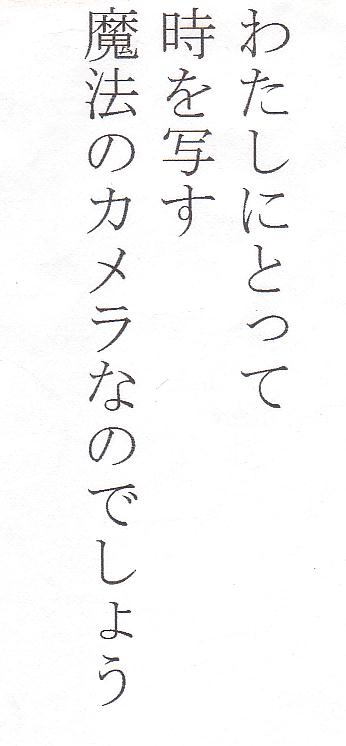 わたしにとって
時を写す
魔法のカメラなのでしょう